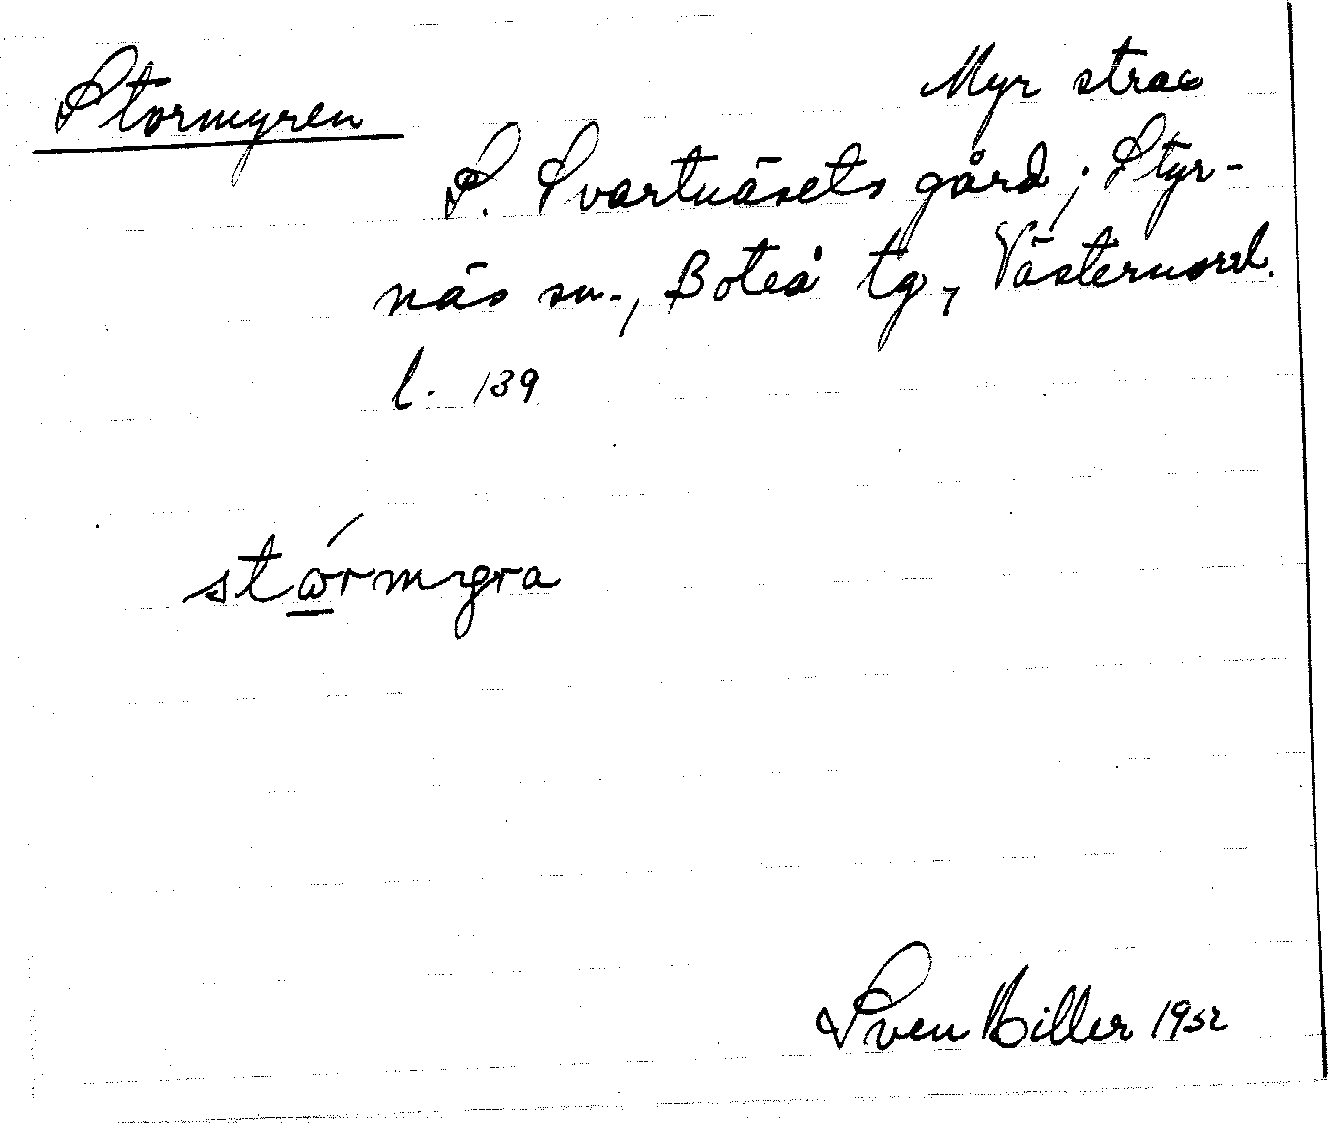 Stormyren
Myr strax
S. Svartnäsets gård; Styr-
näs sn., Boteå tg, Västernorrl.
l. 139
stórmyra
Sven Hiller 1952